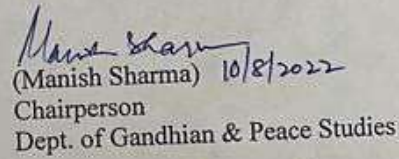 Manish Sharma
(Manish Sharma) 10/8/2022
Chairperson
Dept. of Gandhian & Peace Studies